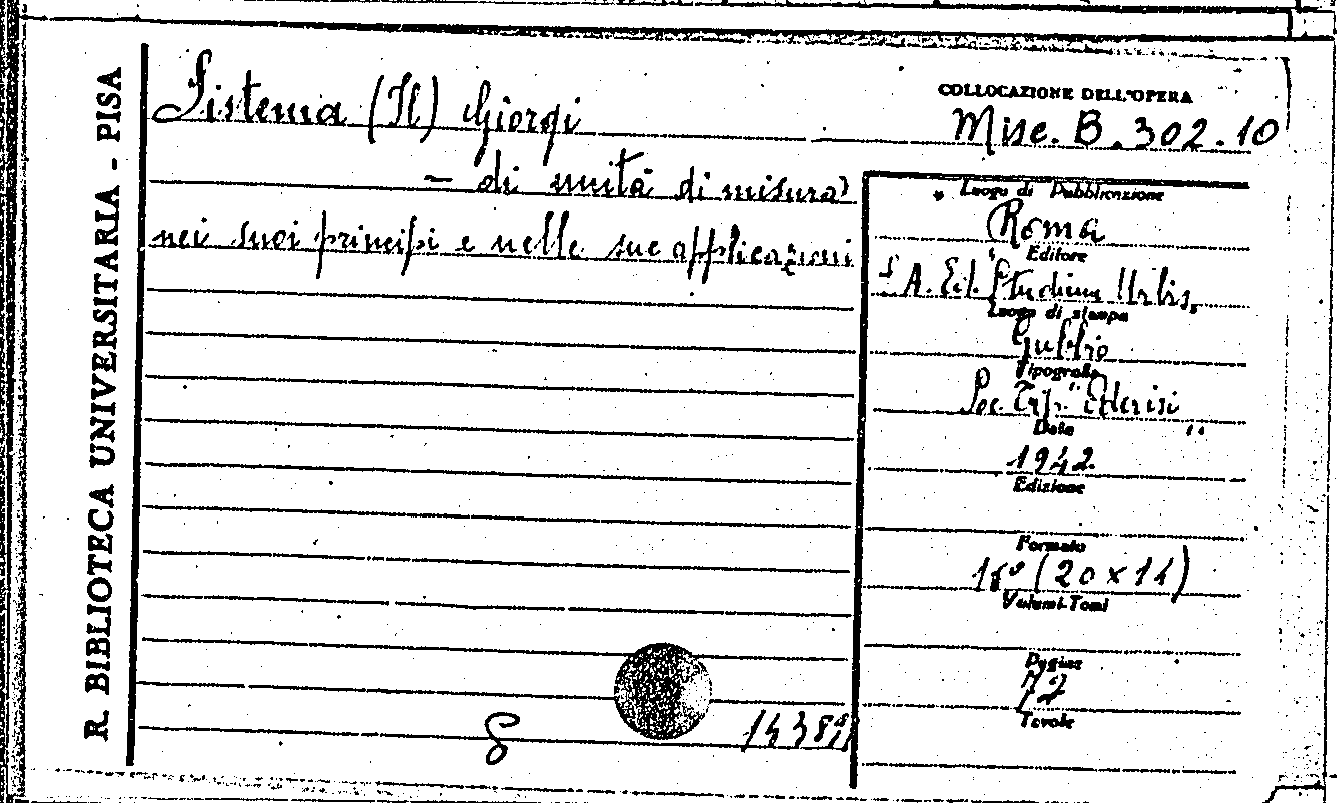 R. BIBLIOTECA UNIVERSITARIA - PISA
Sistema (Il) Giorgi
- di unità di misura
nei suoi principi e nelle sue applicazioni
COLLOCAZIONE DELL'OPERA
Misc. B. 302.10
Luogo di Pubblicazione
Roma
Editore
S. A. Ed. "Studium Urbis"
Luogo di stampa
Gubbio
Tipografia
Soc. Tip. "Oderisi"
Data
1942
Edizione
Formato
16° (20 x 14)
Volumi-Tomi
Pagine
72
Tavole